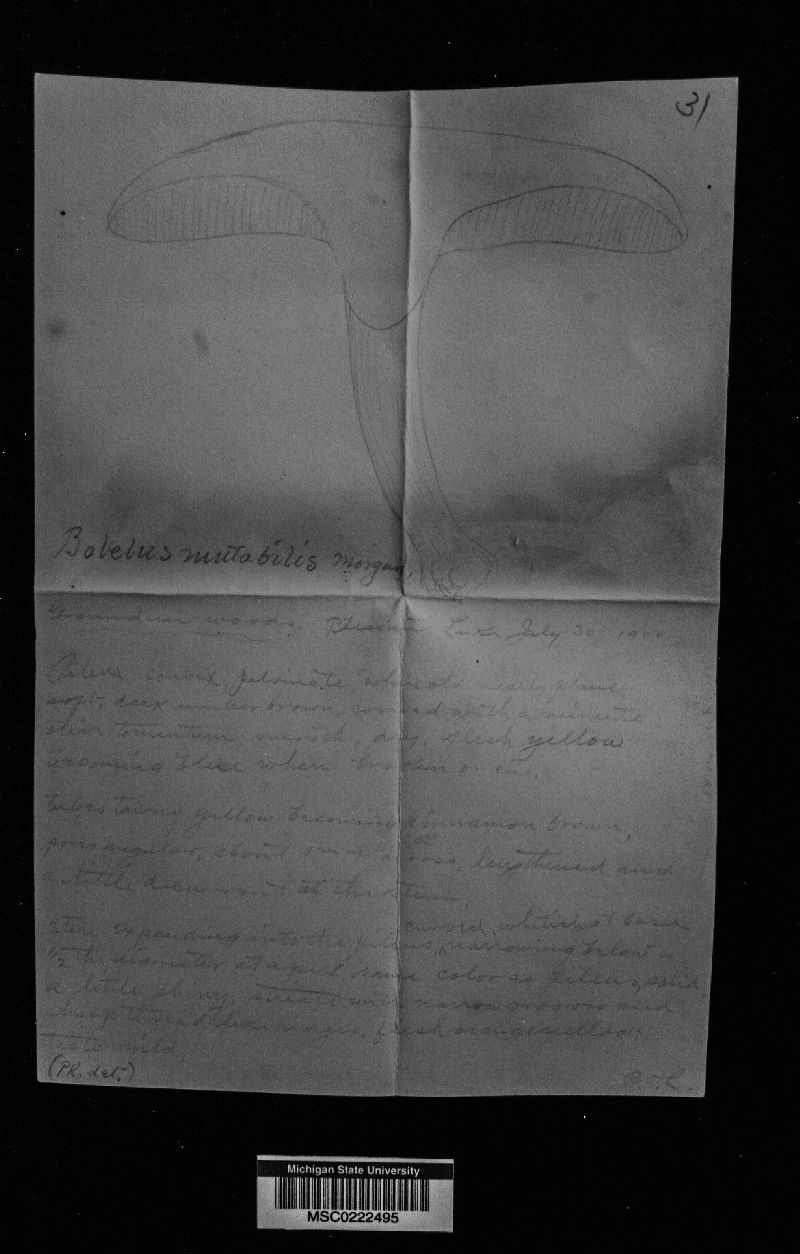 31
Boletus mutabilis Morgan.
Ground in woods. Lake July 30 1900
Pileus convex, pulvinate, when old nearly plane
soft, dark umber brown, covered with a minute
olive tomentum, dry, flesh yellow
becoming blue when broken or cut.
tubes tawny yellow becoming cinnamon brown,
pores angular, about 1 m across, lengthened and
a little decurrent at the stem.
stem expanding into the pileus, curved, whitish at base
narrowing below to
1/2 the diameter at apex same color as pileus, solid,
a little shiny, striate with narrow grooves and
sharp thread like ridges, flesh orange yellow;
taste mild.
(PK. det.)
Michigan State University
MSC0222495